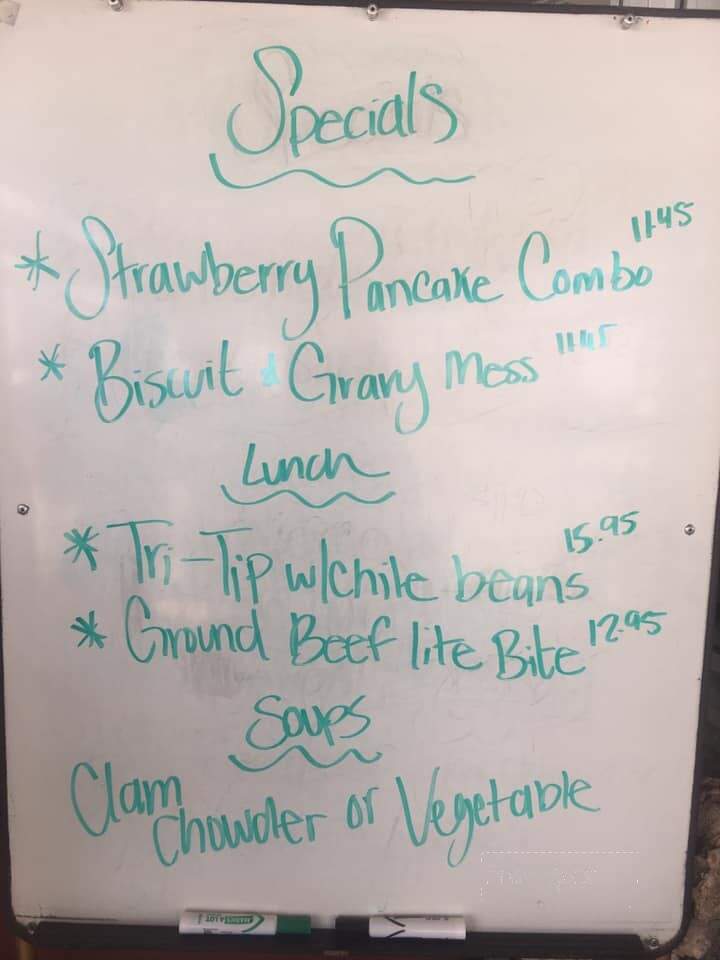 Specials
* Strawberry Pancake Combo 11.45
* Biscuit & Gravy Mess 11.45
Lunch
* Tri-Tip w/chile beans 15.95
* Ground Beef lite Bite 12.95
Soups
Clam
Chowder or Vegetable
MARKS A LOT